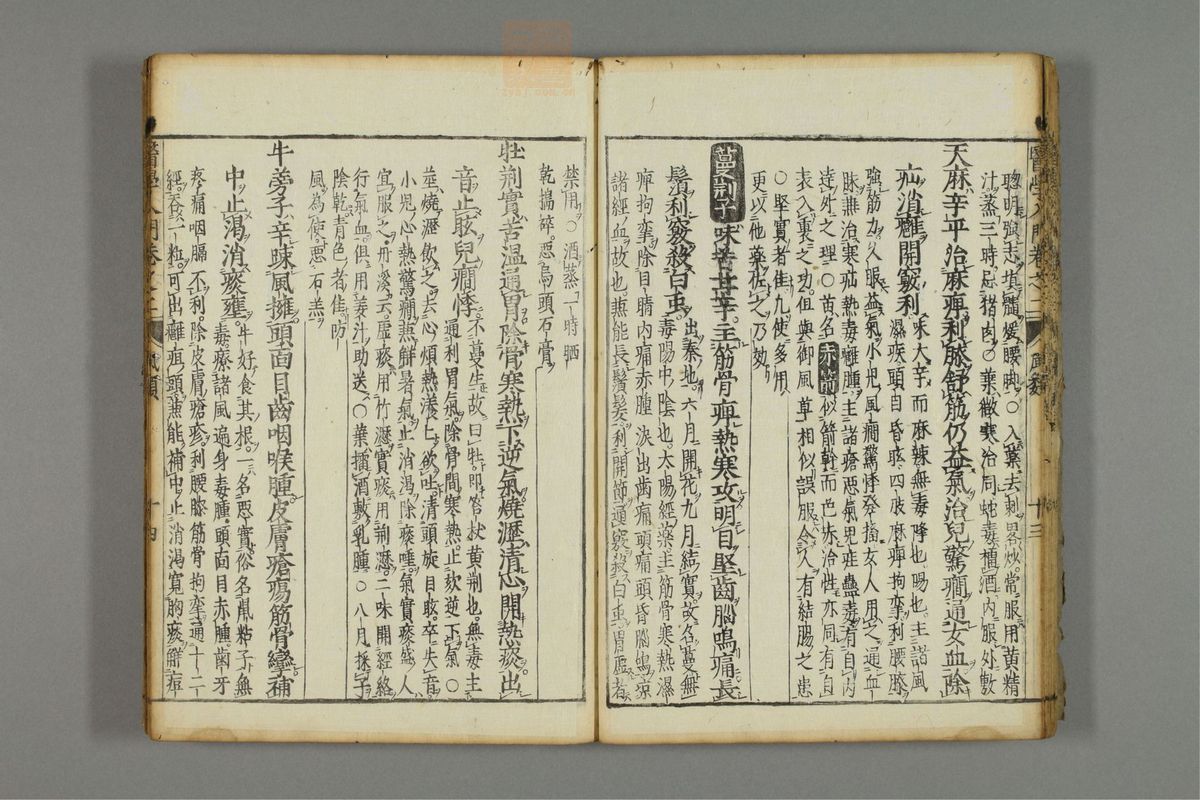 聰明強志填髓煖腰脚○入藥去刺畧炒常服用黄精
汁蒸三時忌猪肉○葉微寒治同蛇毒擅酒内服外敷
天麻辛平治麻痺利膝舒筋仍益氣治兒驚癎通女血除
疝消癰開竅利
味大辛而麻辣無毒降也陽也主諸風
濕痰頭自昏眩四肢麻痺拘攣利腰膝
強筋力久服益氣小兒風癎驚悸發搐女人用之通血
脉燕治寒疝熱毒癰腫主諸瘡惡氣鬼疰蠱毒有自内
達外之理○苗名赤箭似箭幹而色赤治性亦同有自
表入裏之功但與御風草相似誤服令人有結腸之患
○堅實者佳凡使多用
更以他藥佐之乃效
蔓荆子味苦甘辛主筋骨痺熱寒攻明目堅齒腦鳴痛長
鬚利竅殺白虫
出秦地六月開花九月結實故名蔓無
毒陽中陰也太陽經藥主筋骨寒熱濕
痺拘攣除目睛内痛赤腫淚出齒痛頭痛頭昏腦鳴凉
諸經血故也燕能長鬚髮利關節通竅殺白虫胃虛者
禁用○酒蒸一時晒
乾搗碎惡烏頭石膏
牡荆實苦温通胃除骨寒熱下逆氣燒瀝清心開熱痰出
音止眩兒癎悸
不蔓生故曰牡即笞杖黄荆也無毒主
通利胃氣除骨間寒熱止欬逆下氣○
莖燒瀝飲之去心煩熱漾上欲吐清頭旋目眩卒失音
小兒心熱驚癎燕解暑氣止消渇除痰唾氣實痰盛人
宜服之丹溪云虛痰用竹瀝實痰用荆瀝二味開經絡
行氣血俱用姜汁助送○葉擂酒敷乳腫○八月採子
陰乾青色者佳防
風為使惡石羔
牛蒡子辛踈風擁頭面目齒咽喉腫皮膚瘡瘍筋骨攣補
中止渇消痰壅
牛好食其根一名惡實俗名鼠粘子無
毒療諸風遍身毒腫頭面目赤腫齒牙
疼痛咽膈不利除皮膚瘡疹利腰膝筋骨拘攣通十二
經吞一粒可出癰疽頭燕能補中止消渇寛胸痰解痘
醫學入門卷之二
風類
十三
醫學入門卷之二
風類
十四